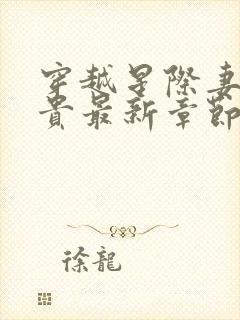 穿越星際妻
貴最新章節
徐龍